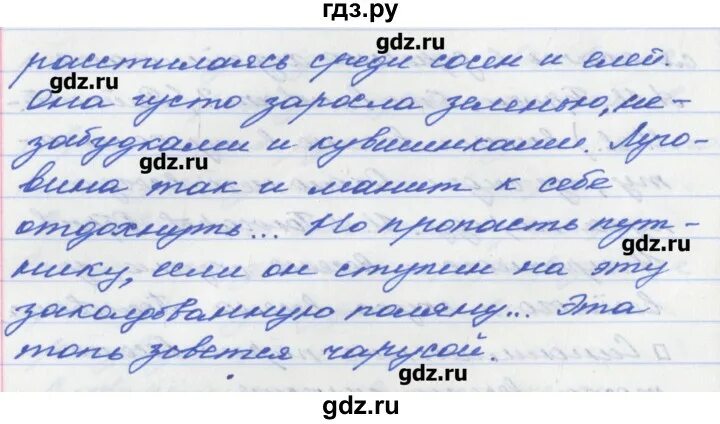 гдз.ру
gdz.ru
расстилаясь среди сосен и елей.
gdz.ru
Она густо заросла зеленью, не-
забудками и кувшинками. Луго-
gdz.ru
вина так и манит к себе
отдохнуть... Но пропасть пут-
gdz.ru
нику, если он ступил на эту
заколдованную поляну... Эта
топь зовется чарусой.
gdz.ru
gdz.ru